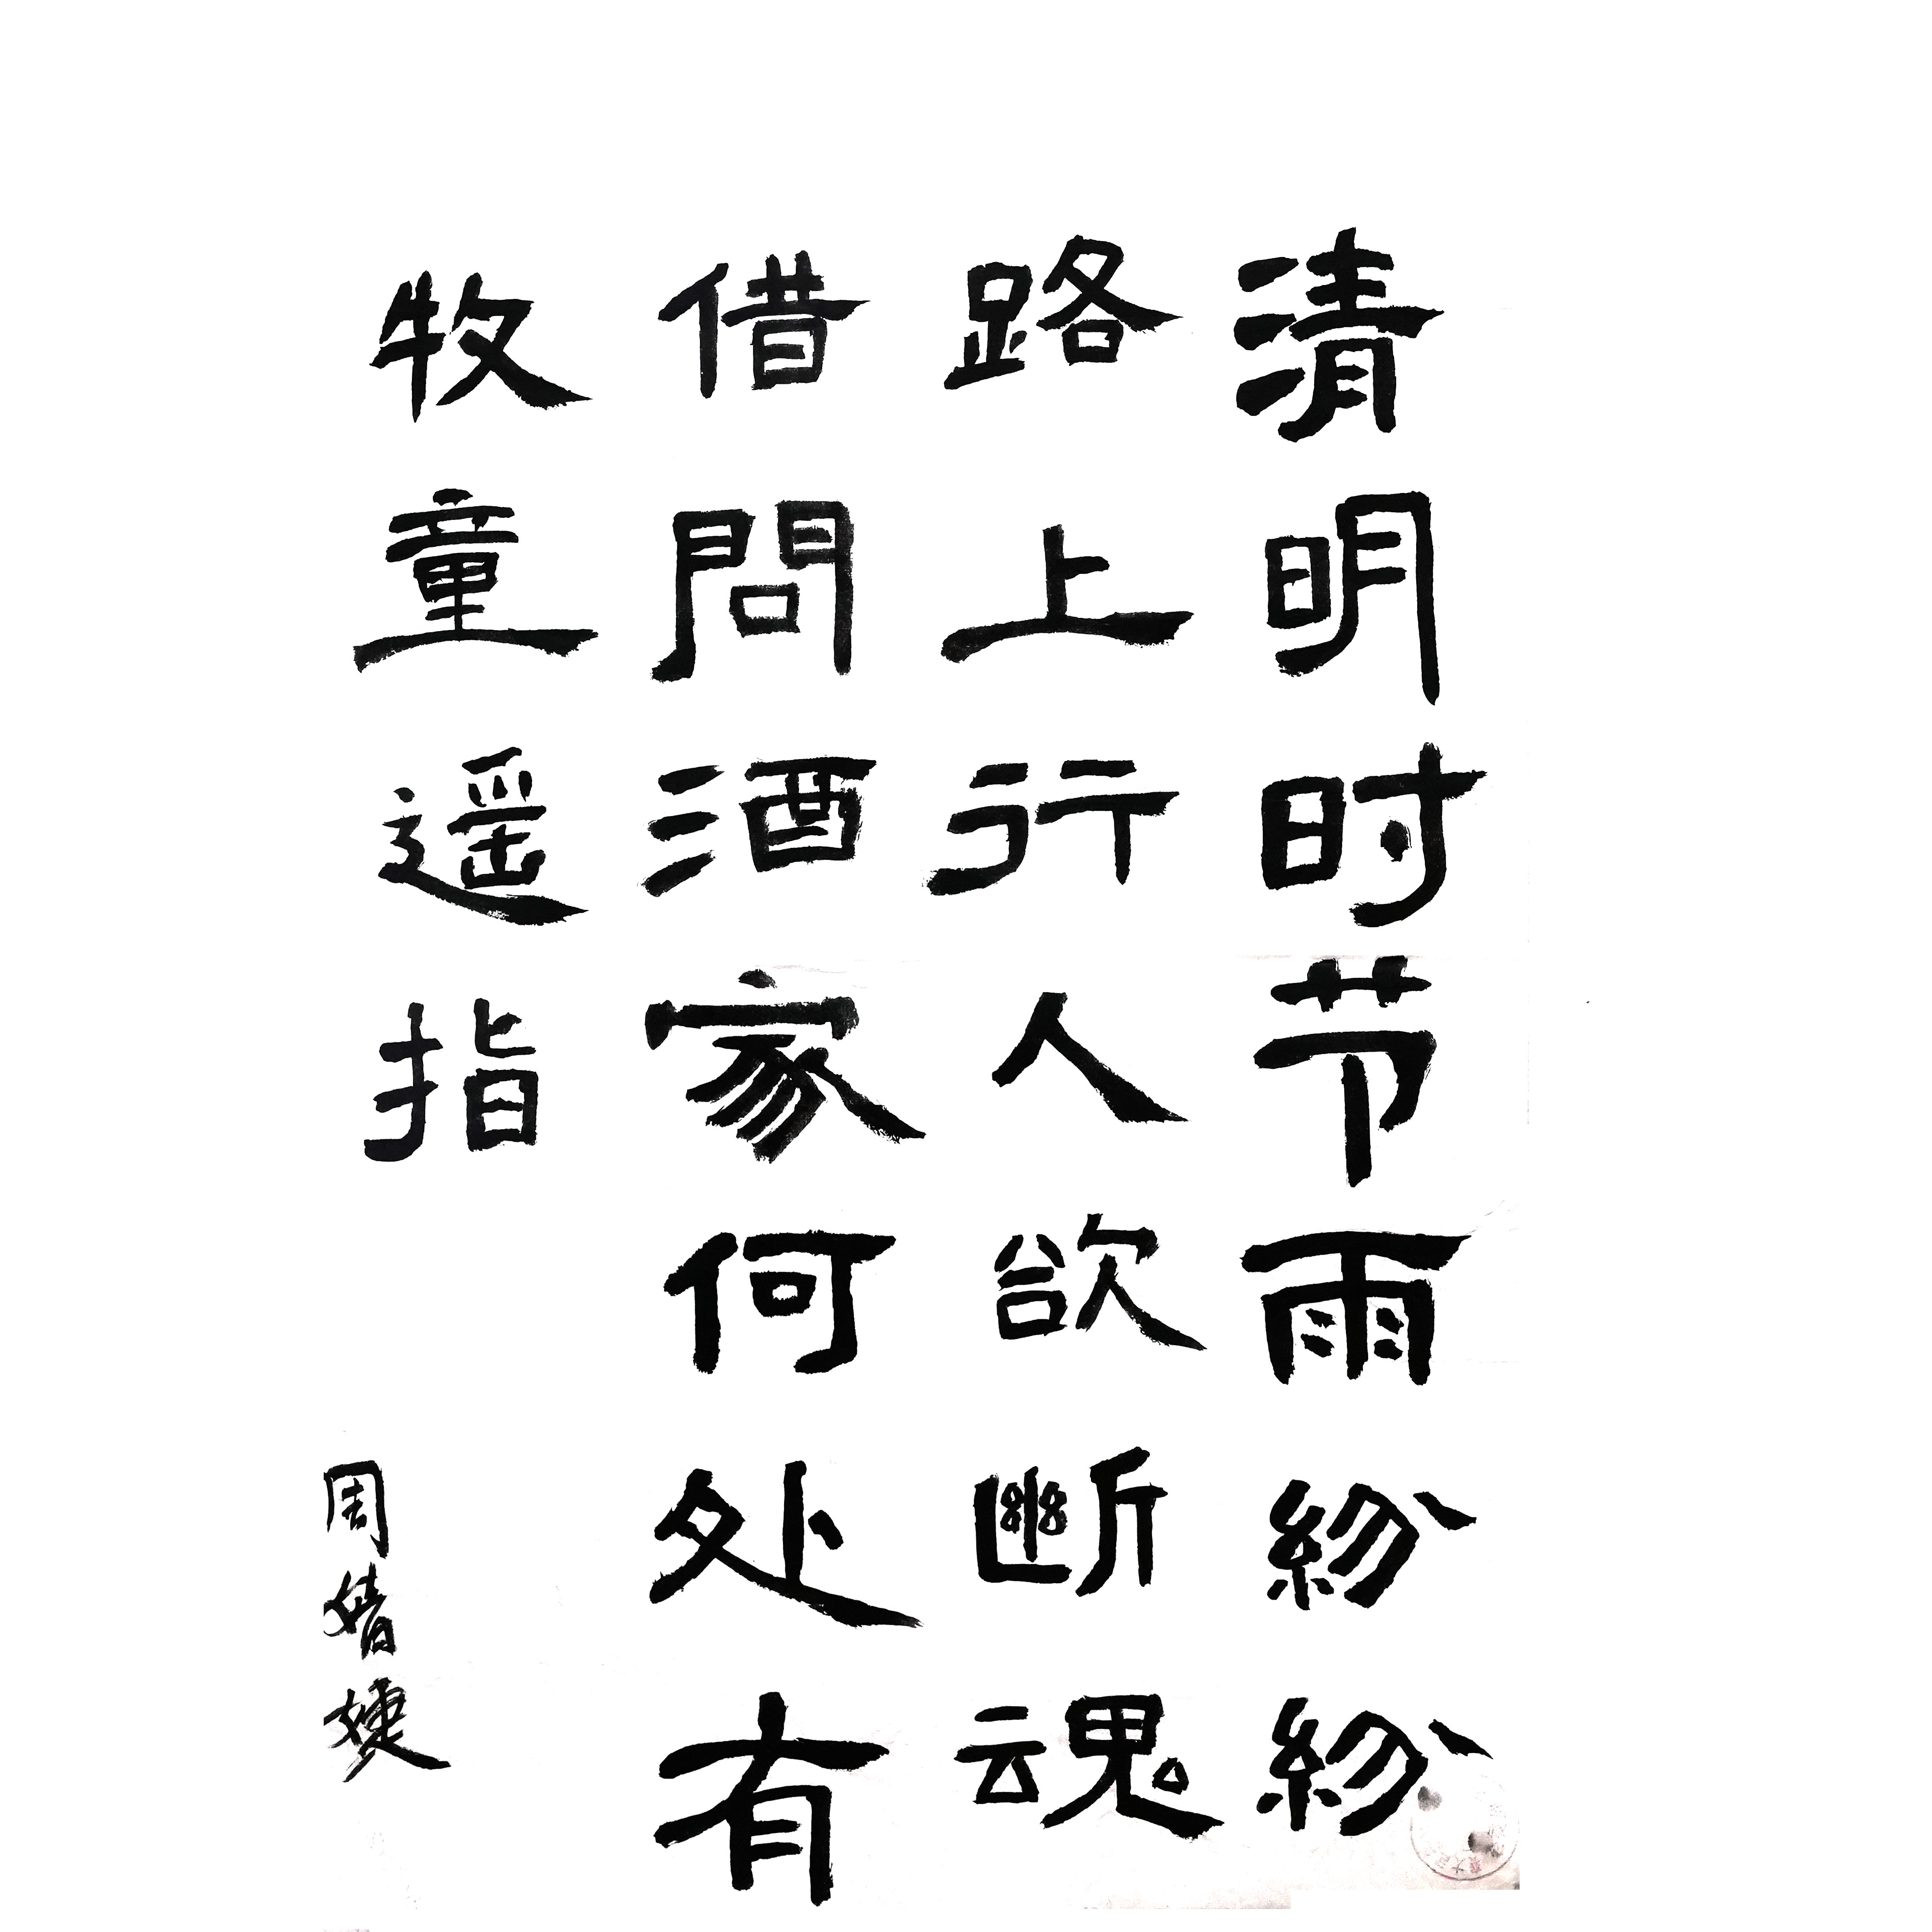 清明时节雨紛紛
路上行人欲斷魂
借問酒家何处有
牧童遥指
周婧婕